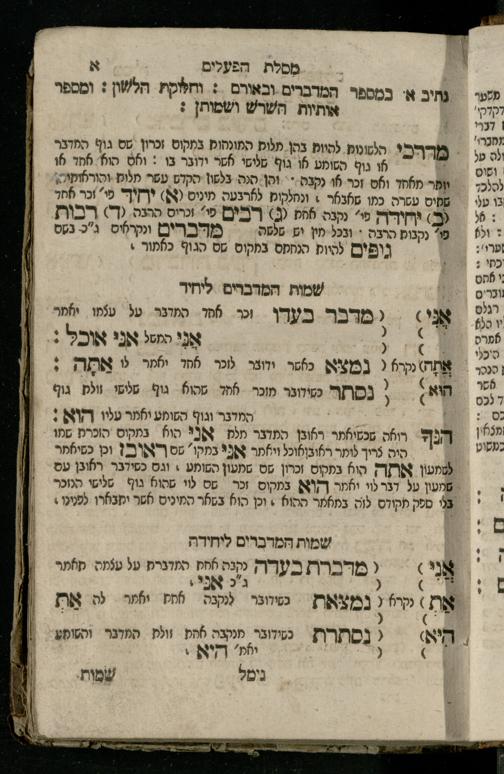 מסלת הפעלים א
נתיב א׳ במספר המדברים ובאורם : וחלוקת הלשון : ומספר
אותיות השרש ושמותן :
מדרכי הלשונות להיות בהן מלות המונחות במקום זכרון שם גוף המדבר
או גוף השומע או גוף שלישי אשר ידובר בו : ואם הוא אחד או
יותר מאחד ואם זכר או נקבה · והן הנה בלשון הקדש עשר מלות והוראותיהן
שתים עשרה כמו שאבאר : ונחלקות לארבעה מינים (א) יחיד פי׳ זכר אחד
(ב) יחידה פי׳ נקבה אחת (ג) רבים פי׳ זכרים הרבה (ד) רבות
פי׳ נקבות הרבה · ובכל מין יש שלשה מדברים ונקראים ג״כ בשם
גופים להיות הנחתם במקום שם הגוף כאמור ,
שמות המדברים ליחיד
אֲנִי ) ( מדבר בעדו זכר אחד המדבר על עצמו יאמר
) ( אֲנִי המשל אני אוכל :
אַתָה) נקרא ( נמצא כאשר ידובר לזכר אחד יאמר לו אַתָה :
הוּא ) ( נסתר כשידובר מזכר אחד שהוא גוף שלישי זולת גוף
) ( המדבר וגוף השומע יאמר עליו הוּא :
הנך רואה שכשיאמר ראובן המדבר מלת אֲנִי הוא במקום הזכרת שמו
היה צריך לומר ראובן אוכל ויאמר אֲנִי במקו׳ שם ראובן וכן כשיאמר
לשמעון אתה הוא במקום זכרון שם שמעון השומע , וגם כשידבר ראובן עם
שמעון על דבר לוי יאמר הוא במקום זכר שם לוי שהוא גוף שלישי הנזכר
בלי ספק מקודם לזה במאמר ההוא , וכן הוא בשאר המינים אשר יתבארו לפנינו ,
שמות המדברים ליחידה
אֲנִי ) ( מדברת בעדה נקבה אחת המדברת על עצמה תאמר
) ( ג״כ אֲנִי ,
אַתְ ) נקרא ( נמצאת כשידובר לנקבה אחת יאמר לה אַתְ
הִיא) ( נסתרת כשידובר מנקבה אחת זולת המדבר והשומע
) ( יאמ׳ היא ,
נימל שמות